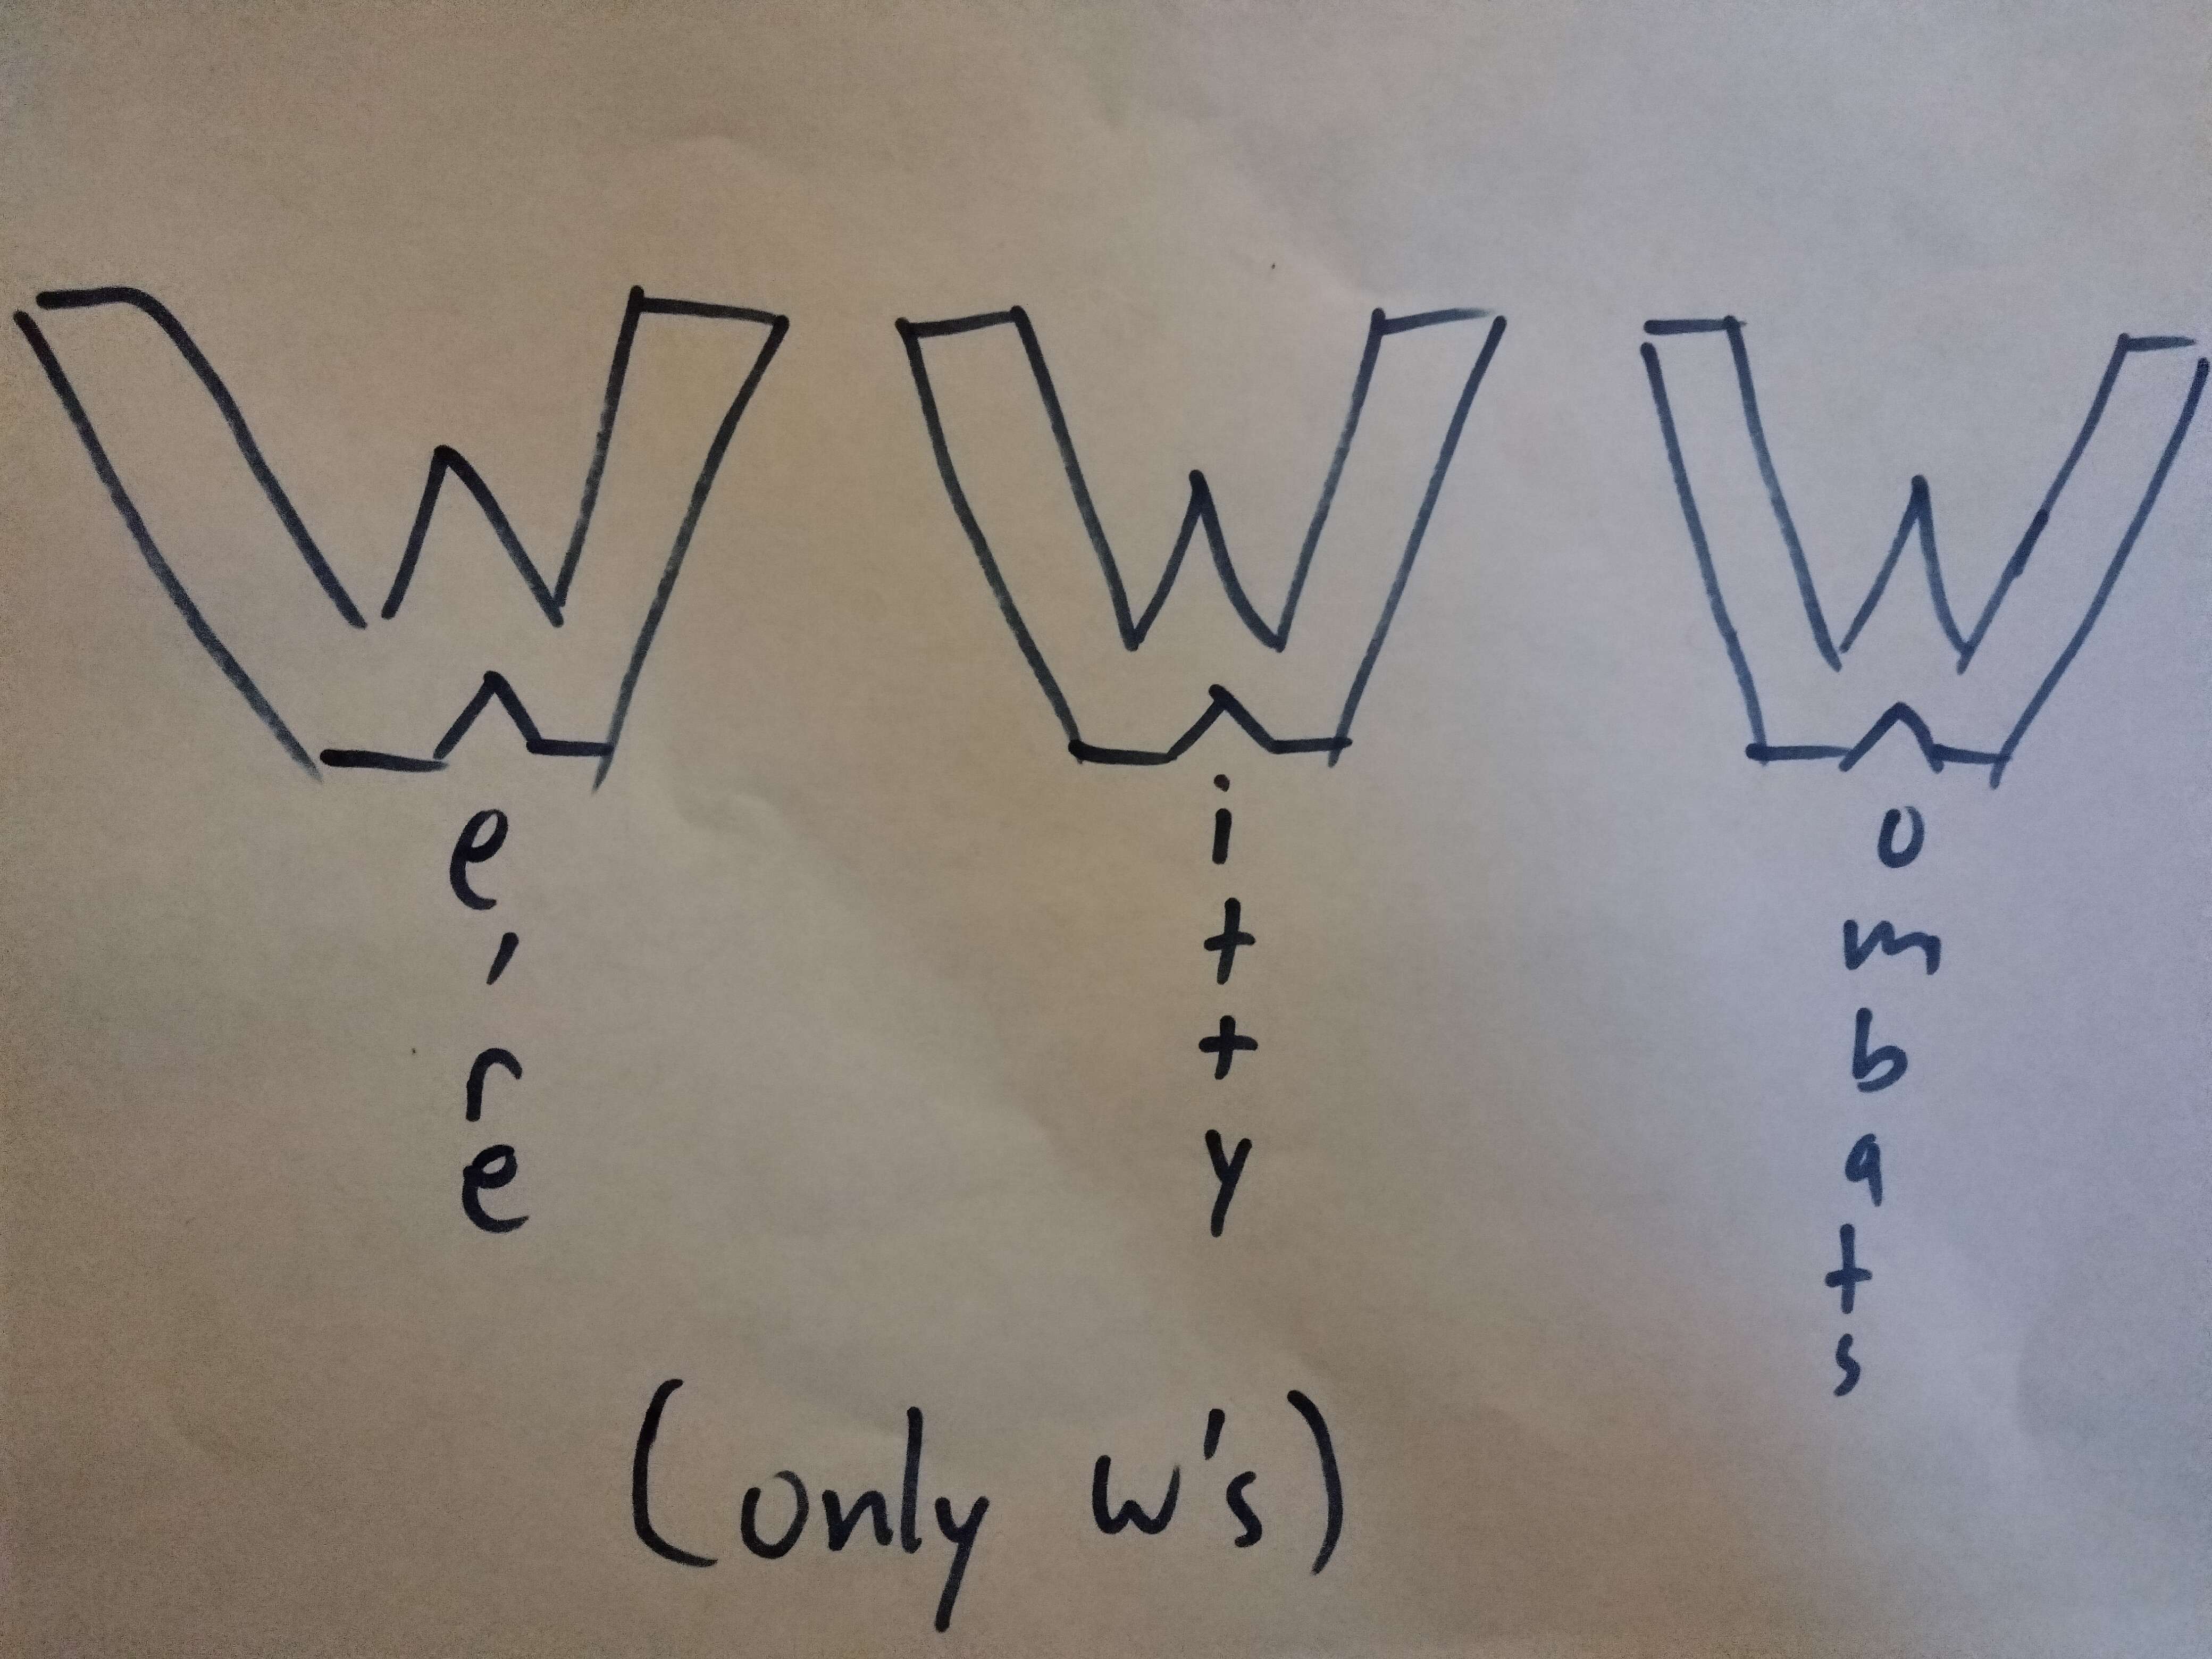 We're
Witty
Wombats
(only w's)